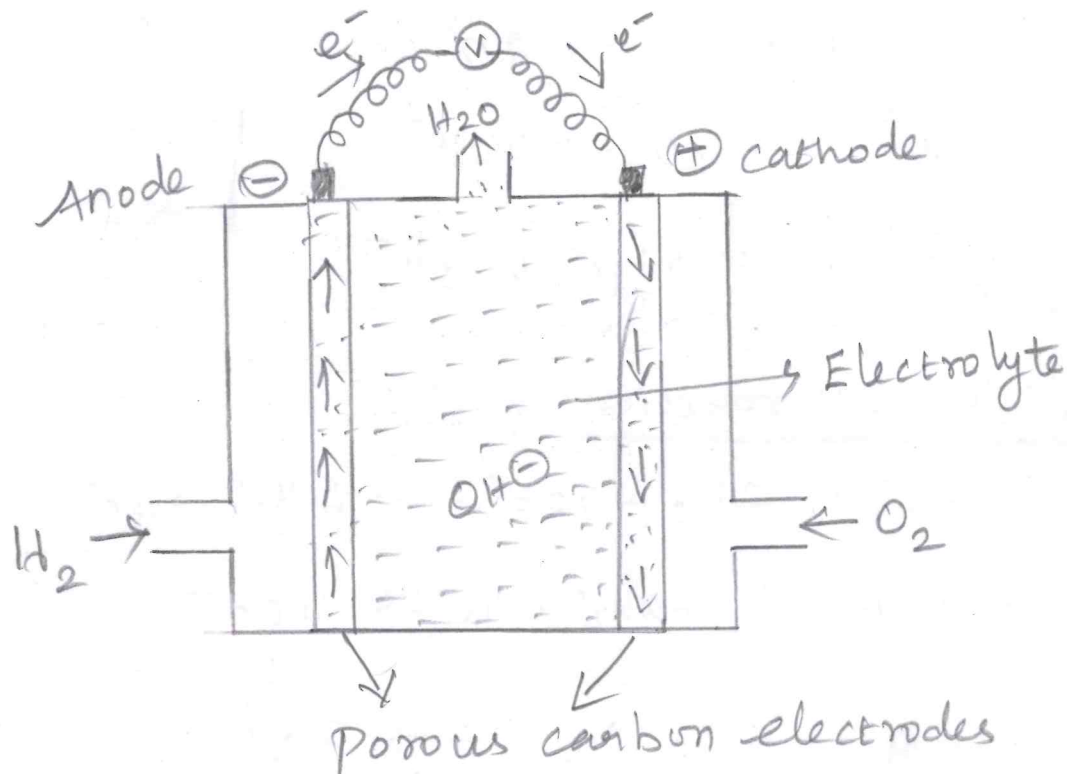 e⁻ V e⁻
H2O
Anode ⊖ ⊕ cathode
Electrolyte
OH⊖
H₂ O₂
Porous carbon electrodes